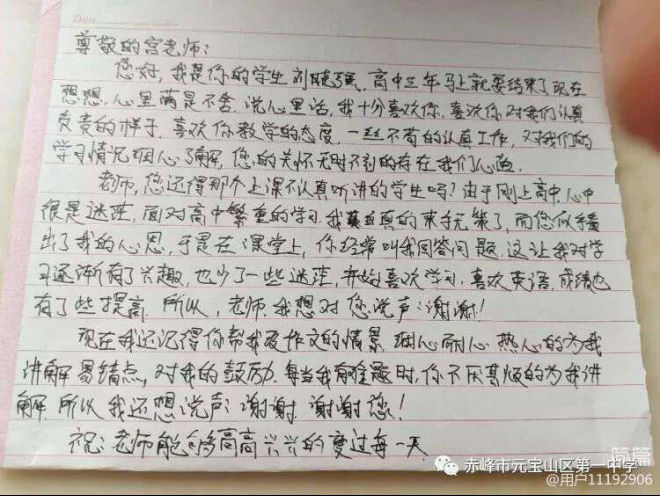 Date
尊敬的宫老师:
您好,我是你的学生刘晓强,高中三年马上就要结束了,现在
想想,心里满是不舍,说心里话,我十分喜欢你,喜欢你对我们认真
负责的样子,喜欢你教学的态度,一丝不苟的认真工作,对我们的
学习情况细心了解,您的关怀无时不刻的存在我们心里。
老师,您还得那个上课不认真听讲的学生吗?由于刚上高中,心中
很是迷茫,面对高中繁重的学习我真的束手无策了,而您似乎看
出了我的心思,于是在课堂上,你经常叫我回答问题,这让我对学
习逐渐有了兴趣,也少了一些迷茫,开始喜欢学习,喜欢英语,成绩也
有了些提高,所以,老师,我想对您说声:谢谢!
现在我还记得你帮我改作文的情景,细心耐心,热心的为我
讲解易错点,对我的鼓励,每当我有难题时,你不厌其烦的为我讲
解,所以我还想说声:谢谢,谢谢您!
祝:老师能够高高兴兴的度过每一天
简篇
赤峰市元宝山区第一中学
@用户11192906